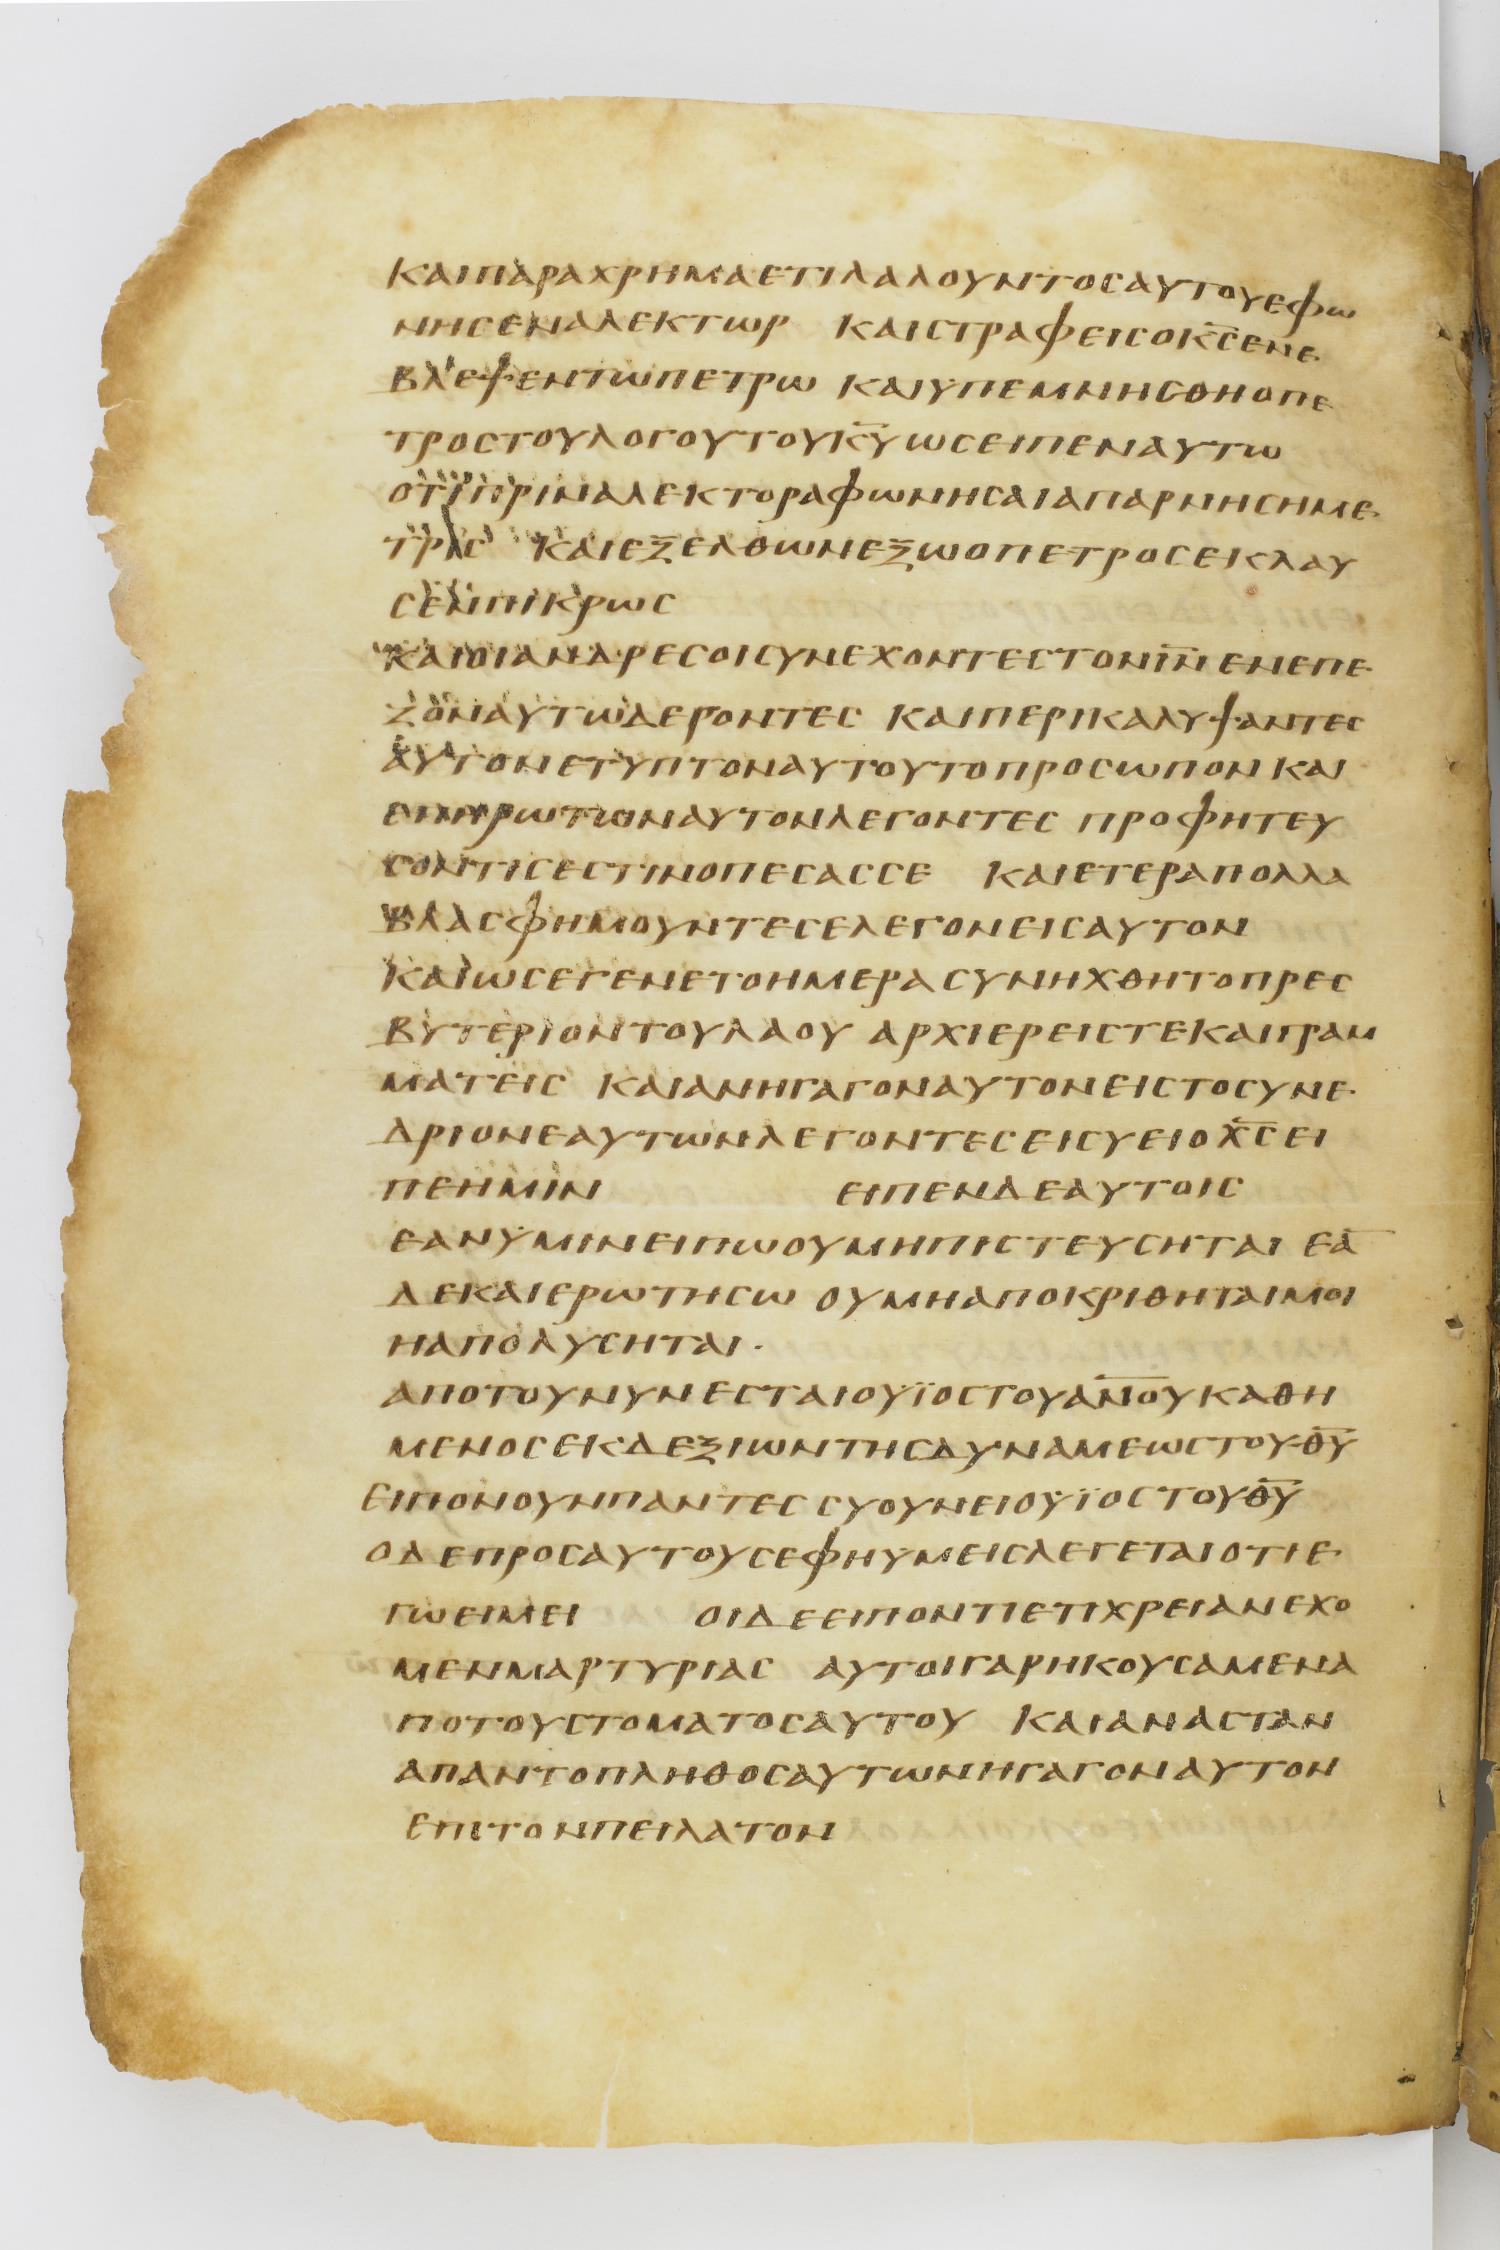 ΚΑΙΠΑΡΑΧΡΗΜΑΕΤΙΛΑΛΟΥΝΤΟϹΑΥΤΟΥΕΦΩ
ΝΗϹΕΝΑΛΕΚΤΩΡ ΚΑΙϹΤΡΑΦΕΙϹΟΚ̅Ϲ̅ΕΝΕ
ΒΛΕΨΕΝΤΩΠΕΤΡΩ ΚΑΙΥΠΕΜΝΗϹΘΗΟΠΕ
ΤΡΟϹΤΟΥΛΟΓΟΥΤΟΥΚ̅Υ̅ΩϹΕΙΠΕΝΑΥΤΩ
ΟΤΙΠΡΙΝΑΛΕΚΤΟΡΑΦΩΝΗϹΑΙΑΠΑΡΝΗϹΗΜΕ
ΤΡΙϹ ΚΑΙΕΞΕΛΘΩΝΕΞΩΟΠΕΤΡΟϹΕΚΛΑΥ
ϹΕΝΠΙΚΡΩϹ
ΚΑΙΟΙΑΝΔΡΕϹΟΙϹΥΝΕΧΟΝΤΕϹΤΟΝΙ̅Ν̅ΕΝΕΠΕ
ΖΟΝΑΥΤΩΔΕΡΟΝΤΕϹ ΚΑΙΠΕΡΙΚΑΛΥΨΑΝΤΕϹ
ΑΥΤΟΝΕΤΥΠΤΟΝΑΥΤΟΥΤΟΠΡΟϹΩΠΟΝΚΑΙ
ΕΠΗΡΩΤΩΝΑΥΤΟΝΛΕΓΟΝΤΕϹ ΠΡΟΦΗΤΕΥ
ϹΟΝΤΙϹΕϹΤΙΝΟΠΕϹΑϹϹΕ ΚΑΙΕΤΕΡΑΠΟΛΛΑ
ΒΛΑϹΦΗΜΟΥΝΤΕϹΕΛΕΓΟΝΕΙϹΑΥΤΟΝ
ΚΑΙΩϹΕΓΕΝΕΤΟΗΜΕΡΑϹΥΝΗΧΘΗΤΟΠΡΕϹ
ΒΥΤΕΡΙΟΝΤΟΥΛΑΟΥ ΑΡΧΙΕΡΕΙϹΤΕΚΑΙΓΡΑΜ
ΜΑΤΕΙϹ ΚΑΙΑΝΗΓΑΓΟΝΑΥΤΟΝΕΙϹΤΟϹΥΝΕ
ΔΡΙΟΝΕΑΥΤΩΝΛΕΓΟΝΤΕϹΕΙϹΥΕΙΟΧ̅Ϲ̅ΕΙ
ΠΕΗΜΙΝ ΕΙΠΕΝΔΕΑΥΤΟΙϹ
ΕΑΝΥΜΙΝΕΙΠΩΟΥΜΗΠΙϹΤΕΥϹΗΤΑΙ ΕΑ̅
ΔΕΚΑΙΕΡΩΤΗϹΩ ΟΥΜΗΑΠΟΚΡΙΘΗΤΑΙΜΟΙ
ΗΑΠΟΛΥϹΗΤΑΙ·
ΑΠΟΤΟΥΝΥΝΕϹΤΑΙΟΥΪΟϹΤΟΥΑ̅Ν̅Ο̅Υ̅ΚΑΘΗ
ΜΕΝΟϹΕΚΔΕΞΙΩΝΤΗϹΔΥΝΑΜΕΩϹΤΟΥΘ̅Υ̅
ΕΙΠΟΝΟΥΝΠΑΝΤΕϹϹΥΟΥΝΕΙΟΥΪΟϹΤΟΥΘ̅Υ̅
ΟΔΕΠΡΟϹΑΥΤΟΥϹΕΦΗΥΜΕΙϹΛΕΓΕΤΑΙΟΤΙΕ
ΓΩΕΙΜΕΙ ΟΙΔΕΕΙΠΟΝΤΙΕΤΙΧΡΕΙΑΝΕΧΟ
ΜΕΝΜΑΡΤΥΡΙΑϹ ΑΥΤΟΙΓΑΡΗΚΟΥϹΑΜΕΝΑ
ΠΟΤΟΥϹΤΟΜΑΤΟϹΑΥΤΟΥ ΚΑΙΑΝΑϹΤΑΝ
ΑΠΑΝΤΟΠΛΗΘΟϹΑΥΤΩΝΗΓΑΓΟΝΑΥΤΟΝ
ΕΠΙΤΟΝΠΕΙΛΑΤΟΝ